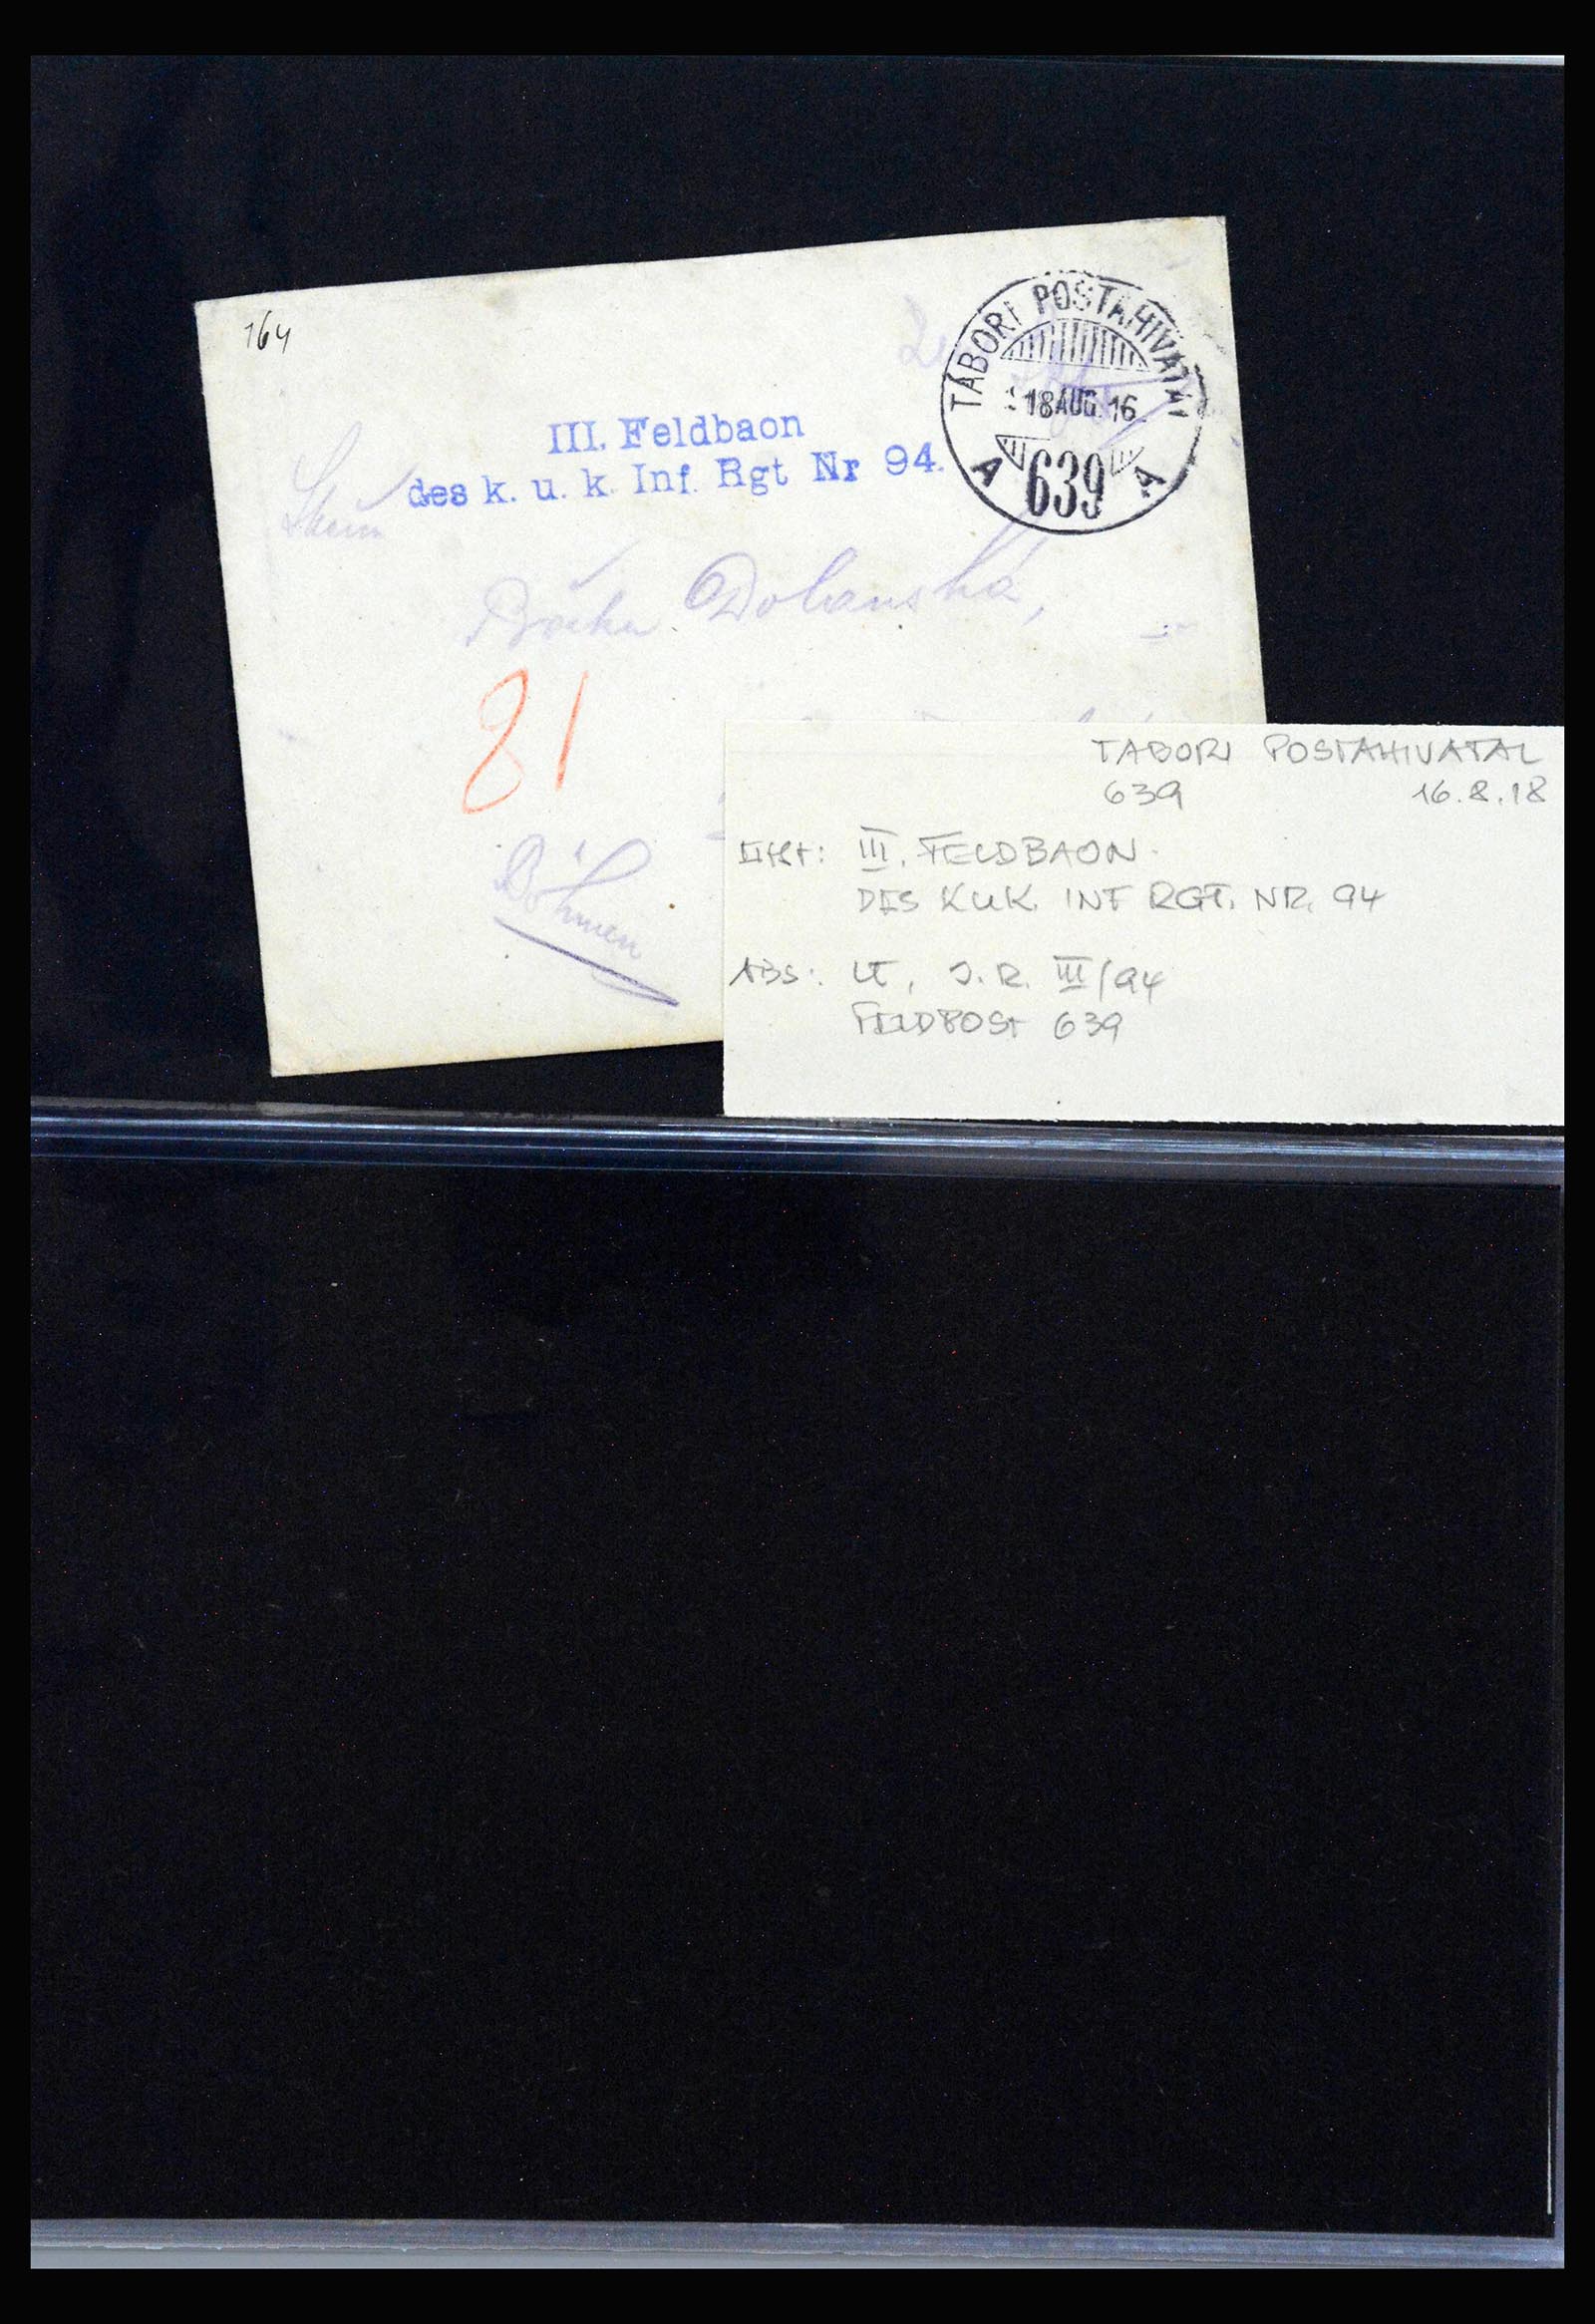 164
TÁBORI POSTAHIVATAL
18 AUG. 16
A 639 A
III. Feldbaon
des k. u. k. Inf. Rgt Nr 94.
Dolanská,
81
Böhmen
TABORI POSTAHIVATAL
639 16.8.18
III. FELDBAON
DES KUK. INF RGT. NR. 94
ABS: LT, J.R. III/94
FELDPOST 639